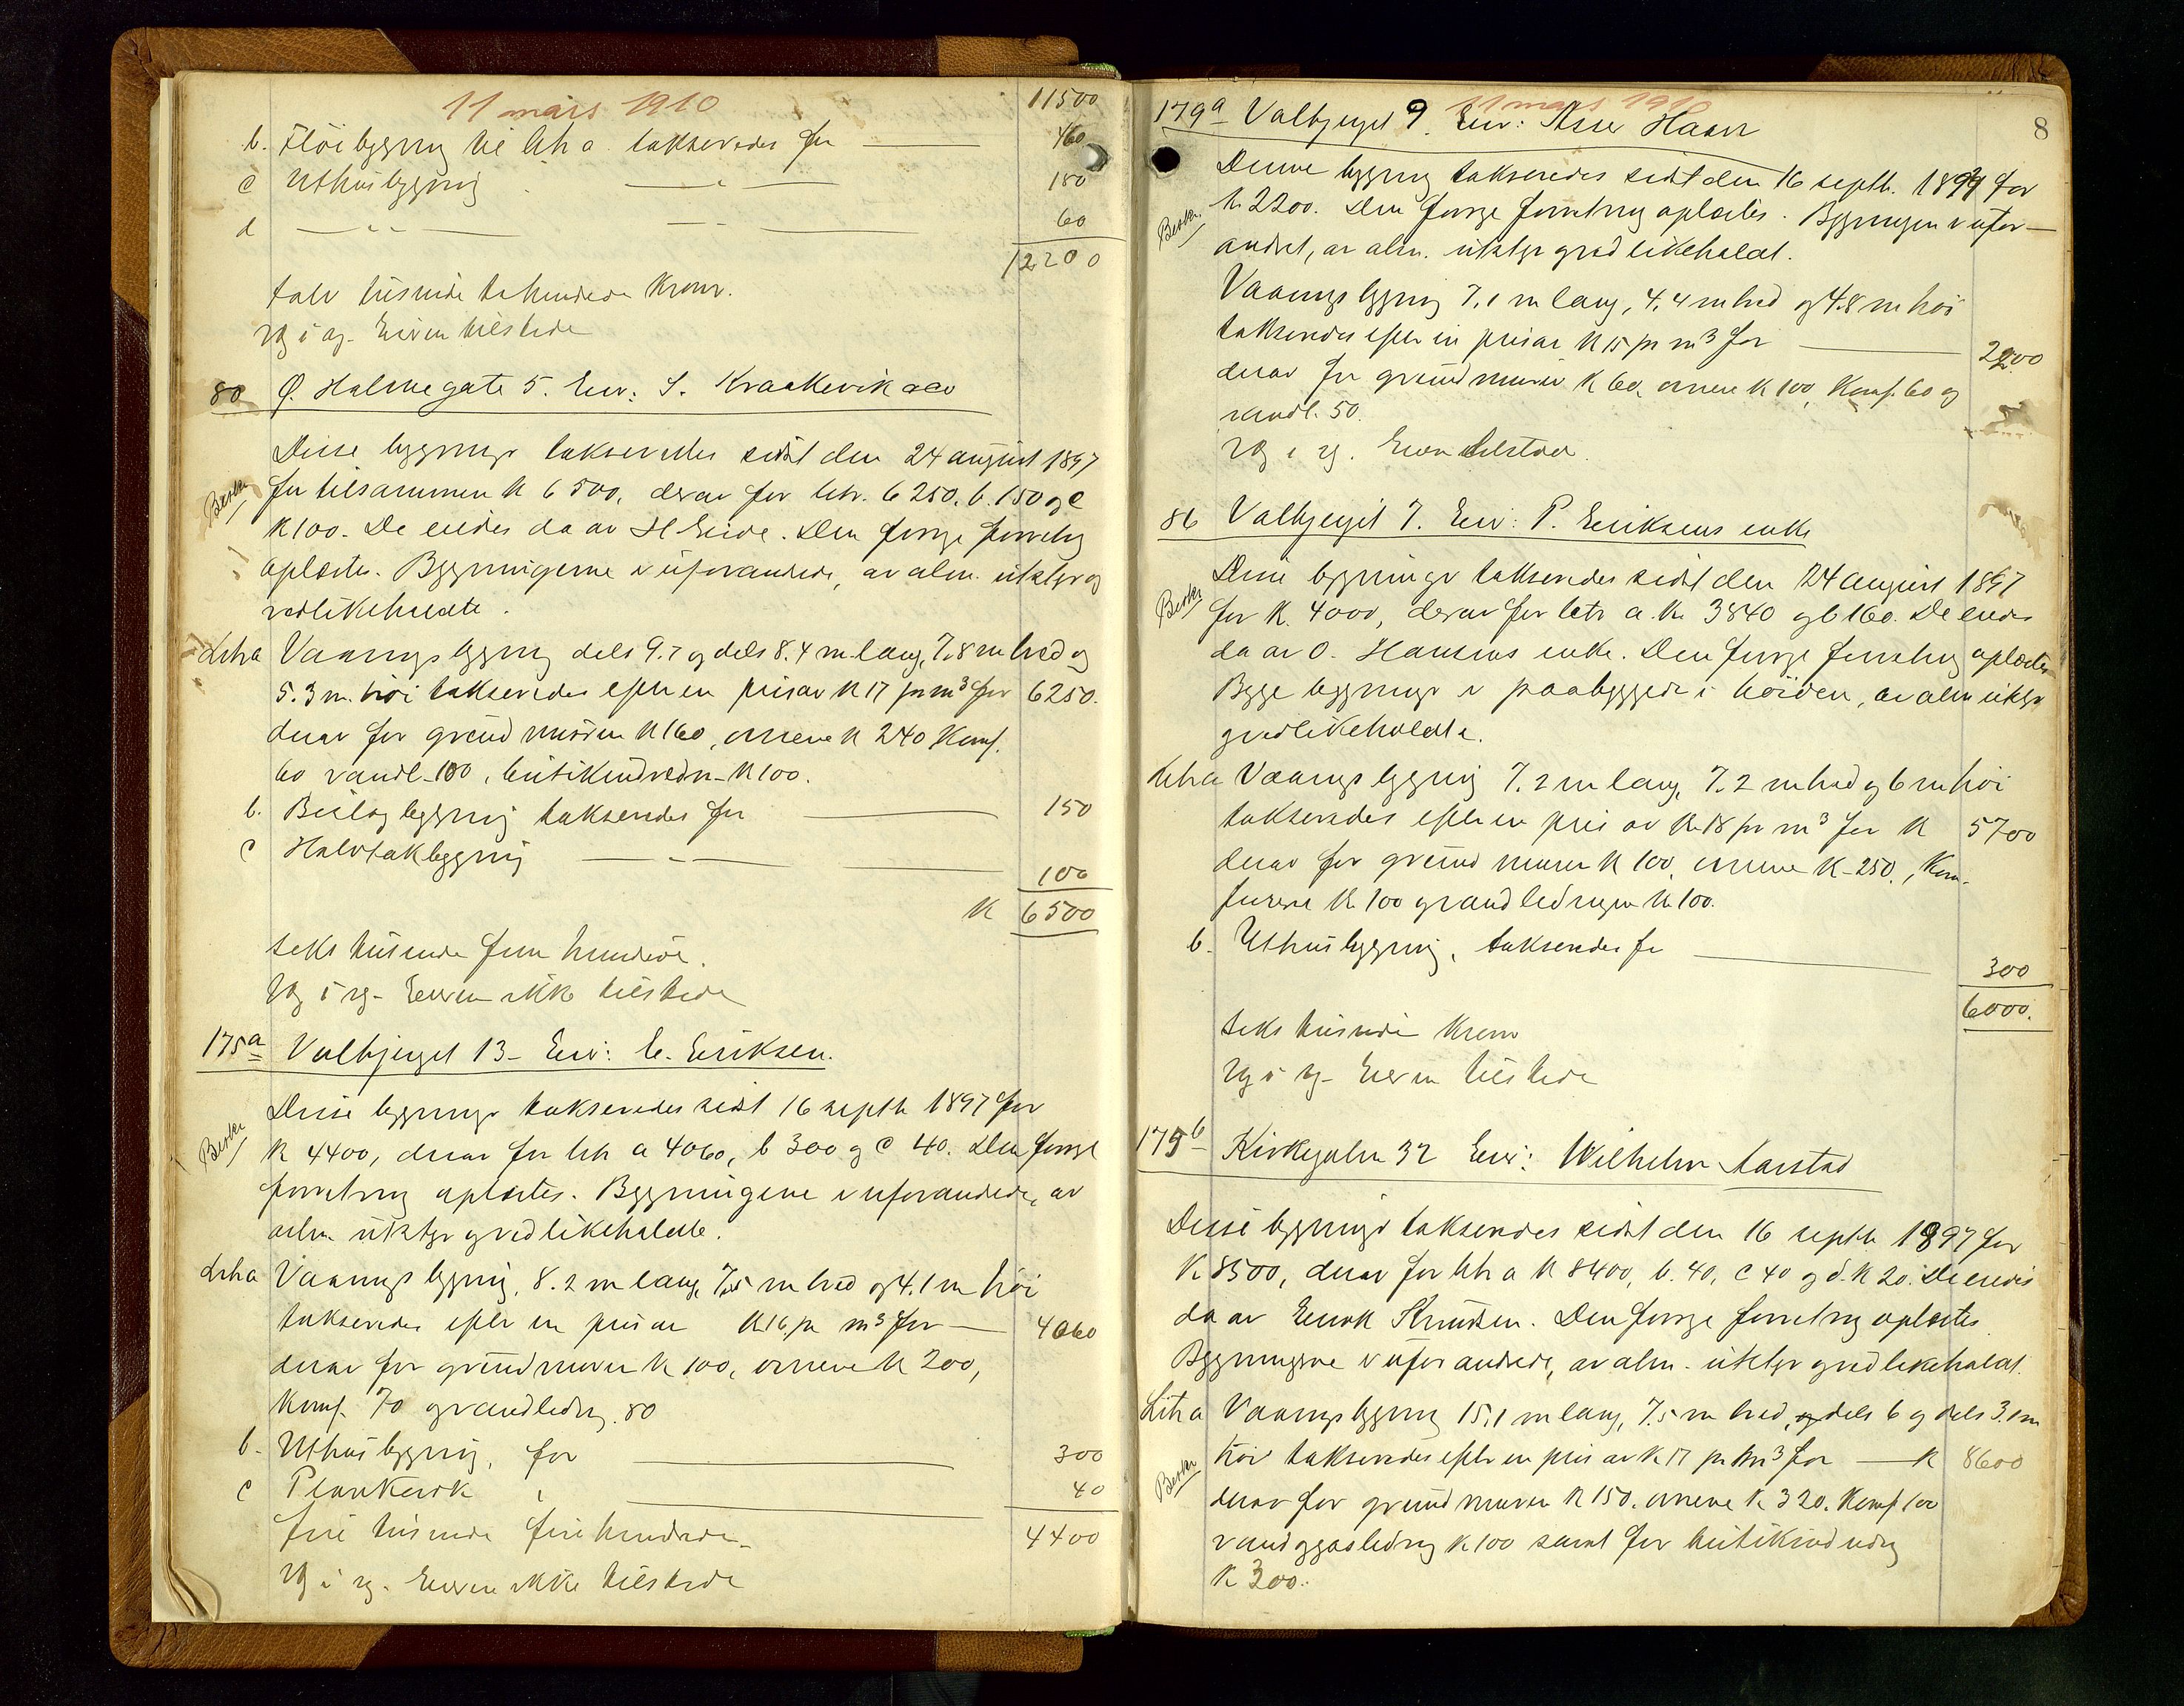 11 mars 1910
11500
b. Flöibygning til litr a. takseredes for 460
c Uthusbygning — " — 180
d — " — — " — 60
12200
tolv tusinde tohundrede Kroner.
Eieren tilstede
80 Ø. Holmegate 5. Eier: S. Kraakevik & co
Disse bygninger takseredes sidst den 24 august 1897
Beskr.
for tilsammen K 6500, derav for litr. 6250. b. 150 og c
K 100. De eiedes da av H Eide. Den forrige forretning
oplæstes. Bygningerne er uforandrede, av alm. utstyr og
vedlikeholdte.
Litr a Vaaningsbygning dels 9.7 og dels 8.4 m lang, 7.8 m bred og
5.3 m. höi takseredes efter en pris av K 17 pr m³ for 6250.
derav for grundmuren K 160, ovnene K 240 Komf.
60 vandl. 100, butikindredn. K 100.
b. Bislagbygning takseredes for 150
c Halvtakbygning — " — 100
K 6500
seks tusinde fem hundrede.
Eieren ikke tilstede
175a Valbjerget 13 - Eier: C. Eriksen.
Disse bygninger takseredes sidst 16 septbr 1897 for
Beskr
K 4400, derav for litr a 4060, b 300 og c 40. Den forrige
forretning oplæstes. Bygningene er uforandrede, av
alm. utstyr og vedlikeholdte.
Litr a Vaaningsbygning, 8.2 m lang, 7.5 m bred og 4.1 m höi
takseredes efter en pris av K 16 pr m³ for — 4060
derav for grundmuren K 100, ovnene K 200,
Komf. 70 og vandledng. 80
b. Uthusbygning, for 300
c Plankeverk " 40
fire tusinde firehundrede 4400
Eieren ikke tilstede
8
11 mars 1910
179a Valbjerget 9. Eier: Haaer
Denne bygning takseredes sidst den 16 septbr. 1897 for
Beskr.
K 2200. Den forrige forretning oplæstes. Bygningen er ufor-
andret, av alm. utstyr og vedlikeholdt.
Vaaningsbygning 7.1 m lang, 4.4 m bred og 4.8 m höi
takseredes efter en pris av K 15 pr m³ for 2200
derav for grundmuren K 60, ovnene K 100, Komf. 60 og
vandl. 50.
Eieren tilstede.
86 Valbjerget 7. Eier: P. Eriksens enke
Disse bygninger takseredes sidst den 24 august 1897
Beskr
for K. 4000, derav for litr a. K. 3840 og b 160. De eiedes
da av O. Hansens enke. Den forrige forretning oplæstes
Begge bygninger er paabygget i höiden, av alm utstyr
og vedlikeholdte.
Litr a Vaaningsbygning 7.2 m lang, 7.2 m bred og 6 m höi
takseredes efter en pris av K 18 pr m³ for K 5700
derav for grundmuren K 100, ovnene K 250, Kom-
furene K 100 og vandledningen K 100.
b. Uthusbygning, takseredes for 300
6000.
seks tusinde Kroner
Eieren tilstede
175b Kirkegaten 32 Eier: Wilhelm Aarstad
Disse bygninger takseredes sidst den 16 septbr 1897 for
K 8500, derav for litr a K 8400, b. 40, c 40 og d. K 20. De eiedes
da av Enok Knudsen. Den forrige forretning oplæstes.
Bygningerne er uforandrede, av alm. utstyr og vedlikeholdt.
Litr a Vaaningsbygning 15.1 m lang, 7.5 m bred, og dels 6 og dels 3.1 m
höi takseredes efter en pris av K 17 pr m³ for — K 8600
Beskr
derav for grundmuren K 150. ovnene K 320. Komf. 100
vand og gasledning K 100 samt for butikindredng
K 300.